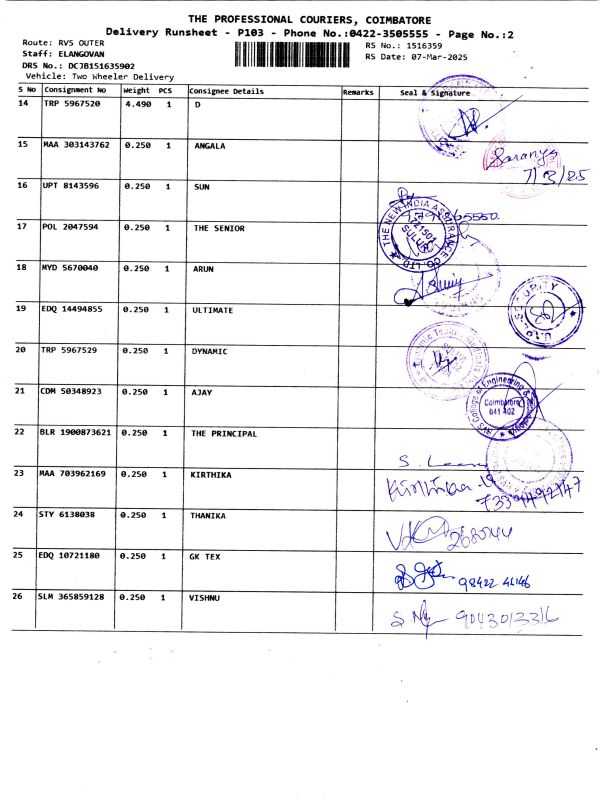 THE PROFESSIONAL COURIERS, COIMBATORE
Delivery Runsheet - P103 - Phone No.:0422-3505555 - Page No.:2
Route: RVS OUTER
RS No.: 1516359
Staff: ELANGOVAN
RS Date: 07-Mar-2025
DRS No.: DCJB151635902
Vehicle: Two Wheeler Delivery
S No Consignment No Weight PCS Consignee Details Remarks Seal & Signature
14 TRP 5967520 4.490 1 D
15 MAA 303143762 0.250 1 ANGALA
Saranya
7/3/25
16 UPT 8143596 0.250 1 SUN
17 POL 2047594 0.250 1 THE SENIOR
THE NEW INDIA ASSURANCE CO. LTD
721501
SULUR
18 MYD 5670040 0.250 1 ARUN
19 EDQ 14494855 0.250 1 ULTIMATE
20 TRP 5967529 0.250 1 DYNAMIC
21 CDM 50348923 0.250 1 AJAY
RVS College of Engineering &
Coimbatore
641 402
22 BLR 1900873621 0.250 1 THE PRINCIPAL
23 MAA 703962169 0.250 1 KIRTHIKA
24 STY 6138038 0.250 1 THANIKA
25 EDQ 10721180 0.250 1 GK TEX
98422 41146
26 SLM 365859128 0.250 1 VISHNU
9043013316